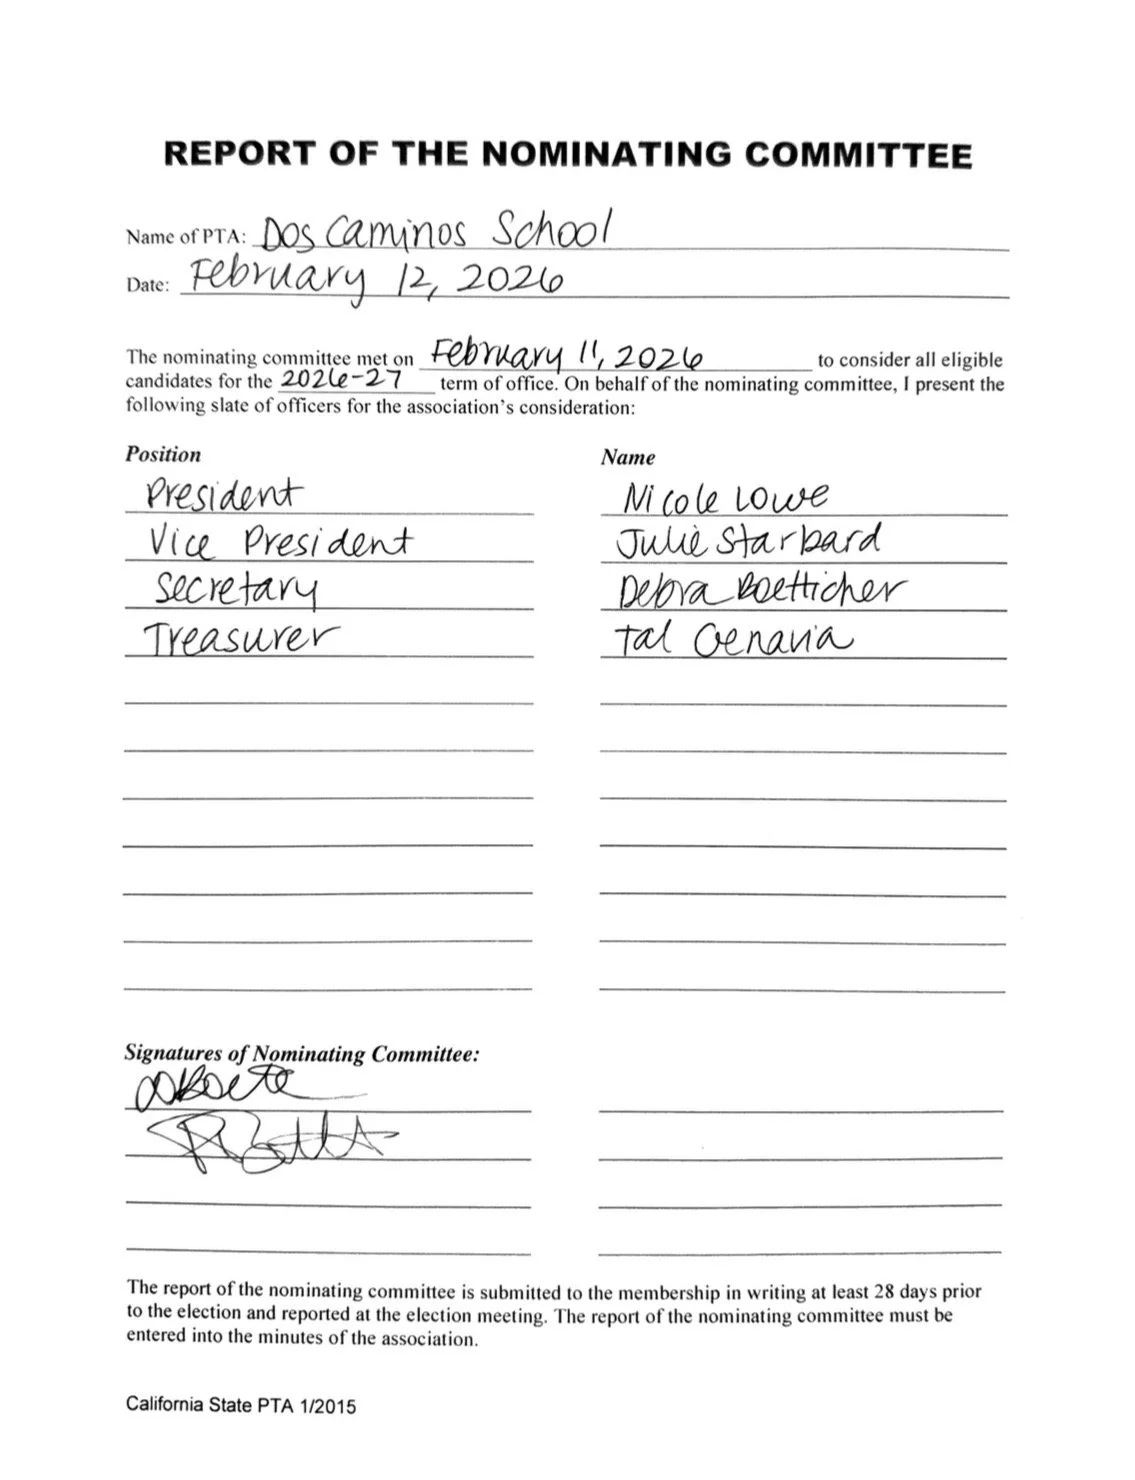 REPORT OF THE NOMINATING COMMITTEE
Name of PTA: Dos Caminos School
Date: February 12, 2026
The nominating committee met on February 11, 2026 to consider all eligible
candidates for the 2026-27 term of office. On behalf of the nominating committee, I present the
following slate of officers for the association's consideration:
Position Name
President Nicole Lowe
Vice President Julie Starbard
Secretary Debra Boetticher
Treasurer Tal
Signatures of Nominating Committee:
The report of the nominating committee is submitted to the membership in writing at least 28 days prior
to the election and reported at the election meeting. The report of the nominating committee must be
entered into the minutes of the association.
California State PTA 1/2015